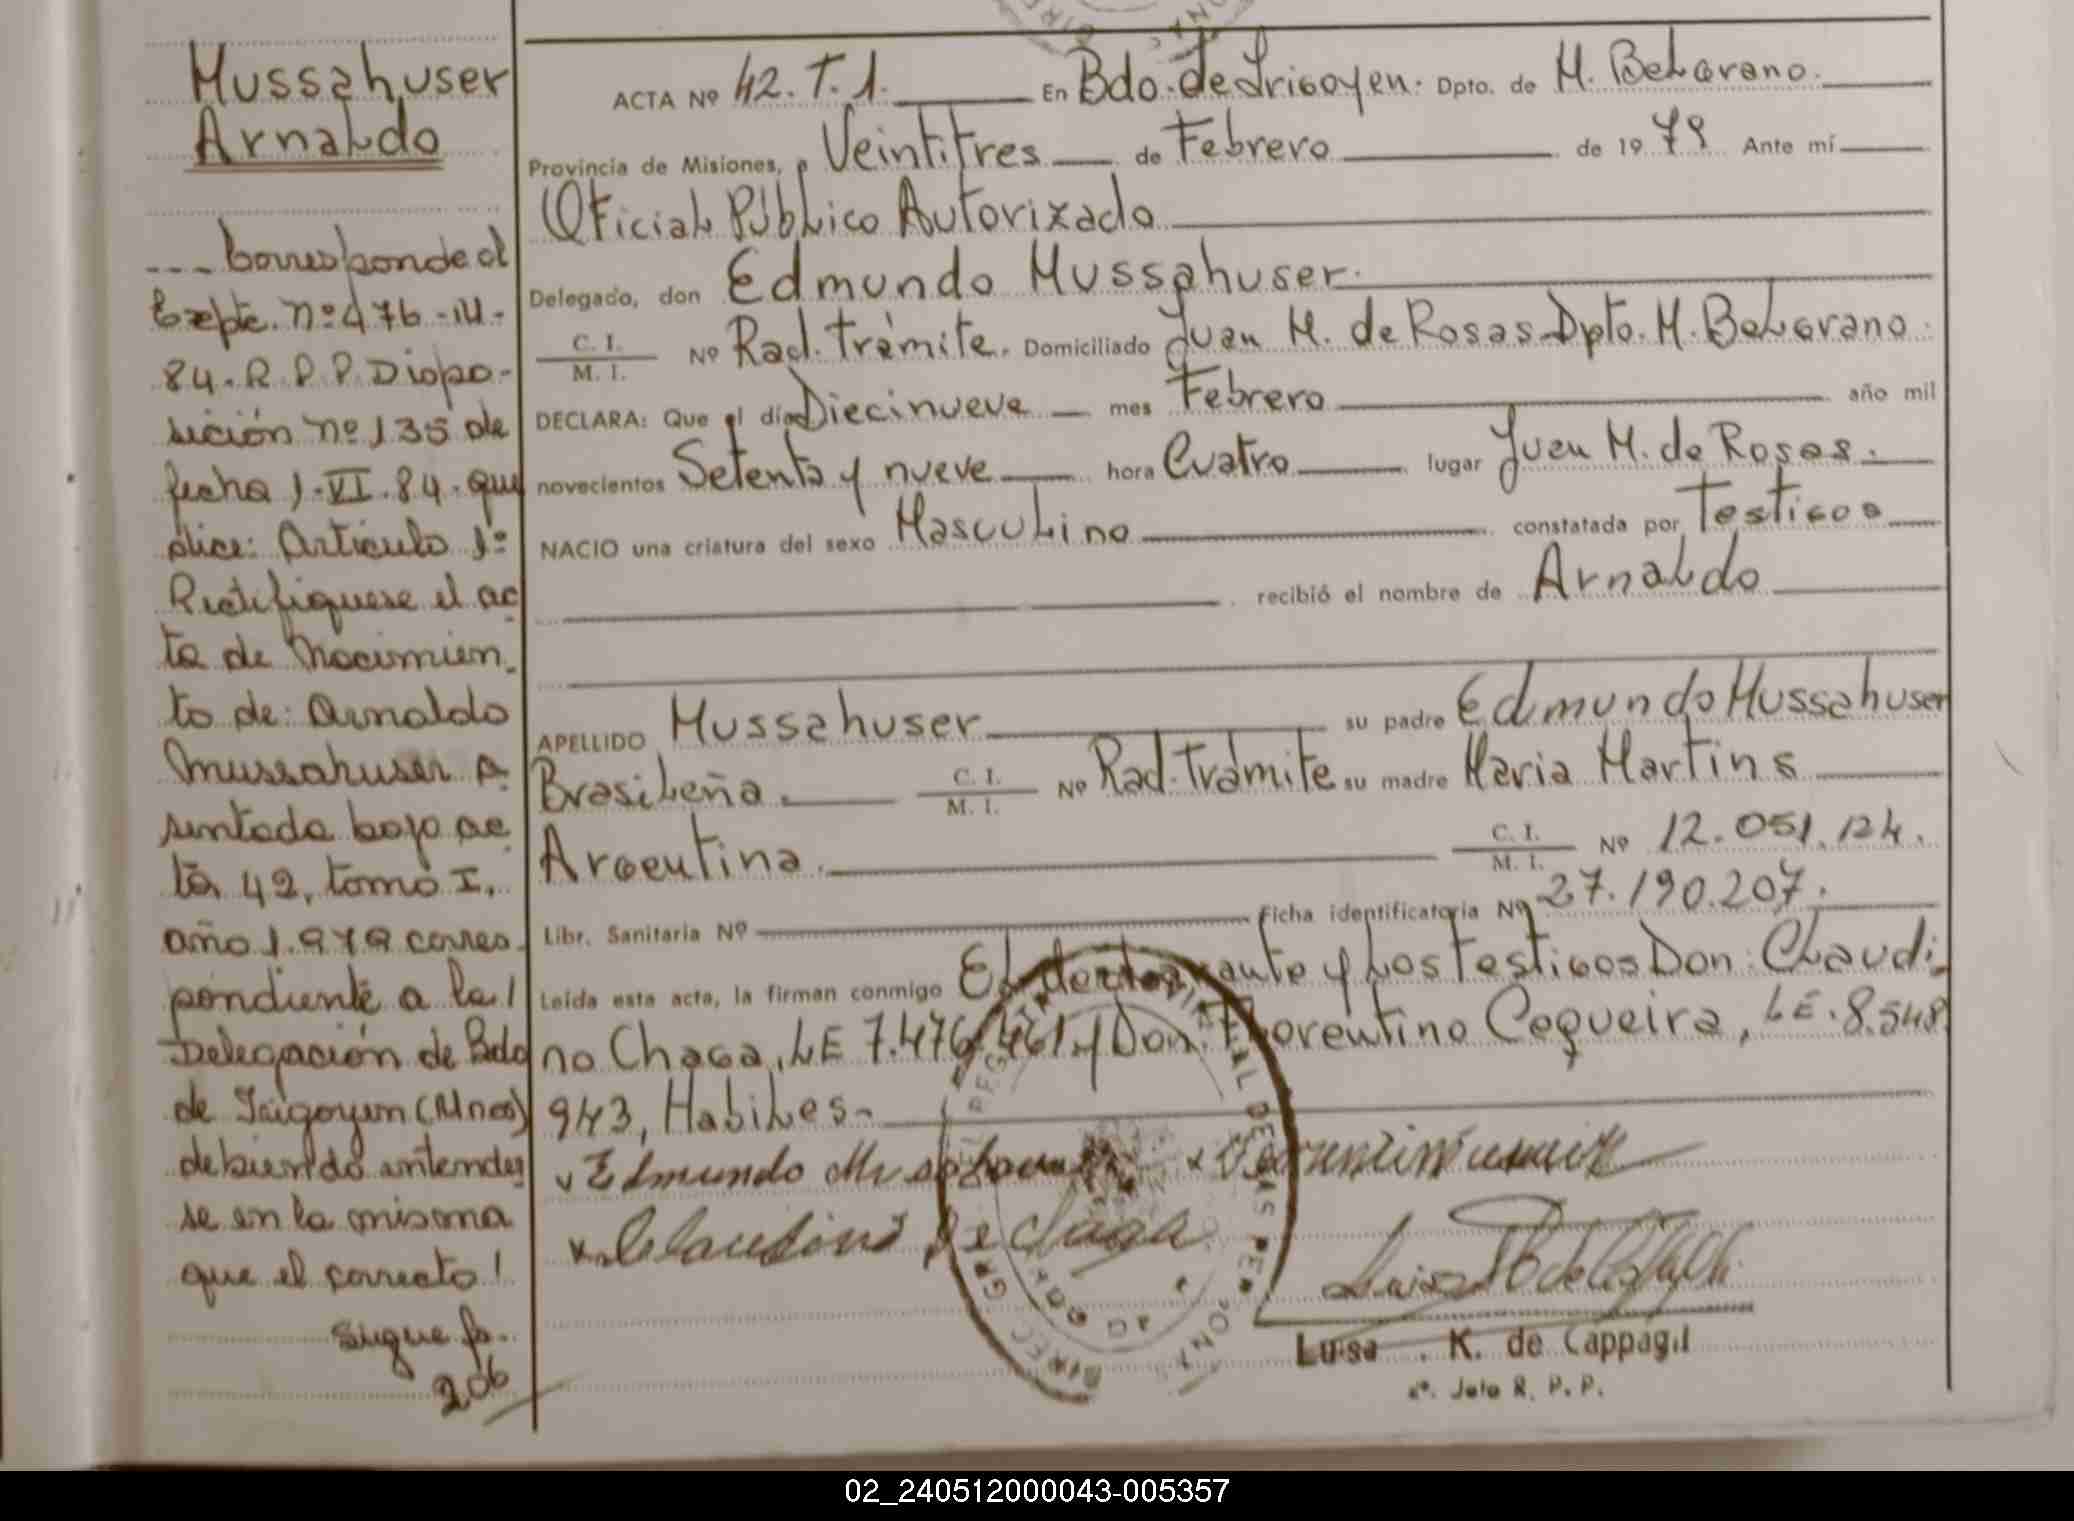 Mussahuser
Arnaldo
Corresponde al
Expte. nº 476-M-
84-R.P.P. Dispo-
sición nº 135 de
fecha 1-VI-84-que
dice: Artículo 1º
Rectifíquese el ac
ta de Nacimien
to de: Arnaldo
Mussahuser a
sentada bajo ac
ta 42, tomo I,
año 1.979 corres
pondiente a la 1
Delegación de Bdo
de Irigoyen (Mnes)
debiendo entender
se en la misma
que el correcto!
Sigue fo.
206
ACTA Nº 42.T.1. En Bdo. de Irigoyen. Dpto. de M. Belgrano.
Provincia de Misiones, a Veintitres de Febrero de 1979 Ante mí
Oficial Público Autorizado
Delegado, don Edmundo Mussahuser.
C. I.
M. I. Nº Rad. trámite. Domiciliado Juan M. de Rosas Dpto. M. Belgrano.
DECLARA: Que el día Diecinueve mes Febrero año mil
novecientos Setenta y nueve hora Cuatro lugar Juan M. de Rosas.
NACIO una criatura del sexo Masculino constatada por Testigos
recibió el nombre de Arnaldo
APELLIDO Mussahuser su padre Edmundo Mussahuser
Brasileña. C. I. M. I. Nº Rad. trámite su madre Maria Martins
Argentina. C. I. M. I. Nº 12.051.124.
Libr. Sanitaria Nº Ficha identificatoria Nº 27.190.207.
Leída esta acta, la firman conmigo El declarante y los Testigos Don: Claudi-
no Chaga, LE 7.476.461. y Don: Florentino Cequeira, LE. 8.548.
943, Habiles-
x Edmundo
x Claudino de Chaga
Luisa K. de Cappagli
Jefe R. P. P.
02_240512000043-005357